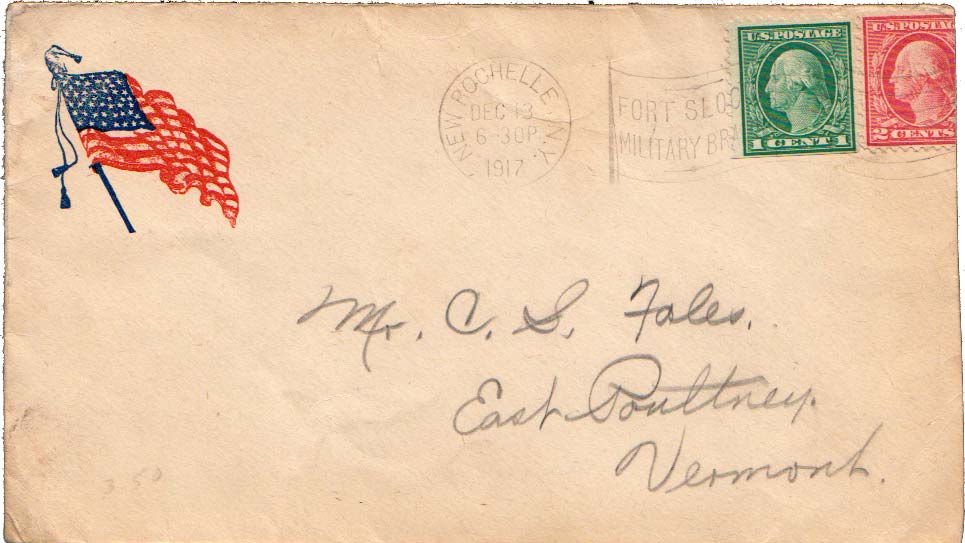 NEW ROCHELLE N.Y.
DEC 13
6-30P
1917
FORT SLOC
MILITARY BR
U.S. POSTAGE
1 CENT 1
U.S. POSTAG
2 CENTS
Mr. C. S. Fales.
East Poultney.
Vermont.
3 50